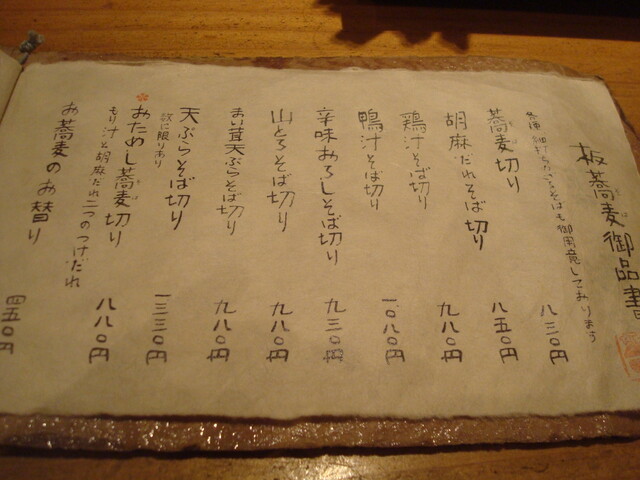 板蕎麦御品書
そばも御用意しております
蕎麦切り 八三〇円
胡麻だれそば切り 八五〇円
鶏汁そば切り 九八〇円
鴨汁そば切り 一〇八〇円
辛味おろしそば切り 九三〇円
山とろそば切り 九八〇円
まい茸天ぷらそば切り 九八〇円
天ぷらそば切り 一三三〇円
数に限りあり
おためし蕎麦切り 八八〇円
もり汁と胡麻だれ二つのつけだれ
お蕎麦のお替り 四五〇円